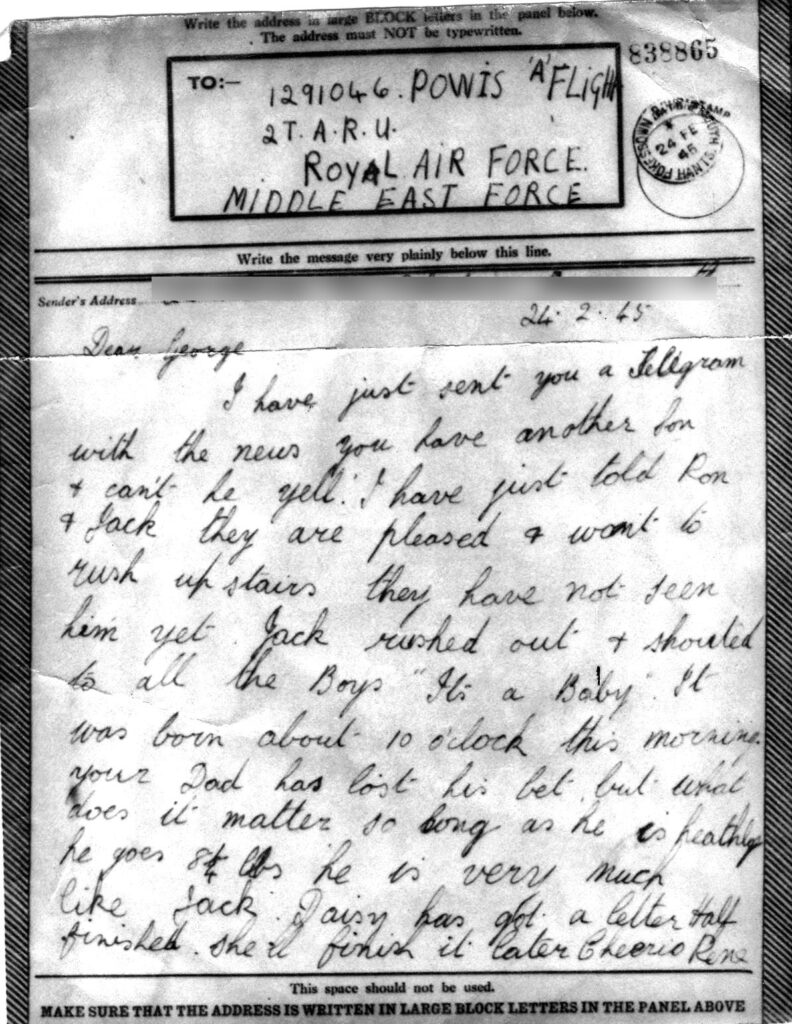 Write the address in large BLOCK letters in the panel below.
The address must NOT be typewritten.
838865
TO:—
1291046. POWIS 'A' FLIGH
2 T. A. R. U.
ROYAL AIR FORCE.
MIDDLE EAST FORCE
24 FE
45
Write the message very plainly below this line.
Sender's Address
24. 2. 45
Dear George
I have just sent you a Telegram
with the news you have another Son
& can't he yell! I have just told Ron
& Jack they are pleased & want to
rush up stairs they have not seen
him yet. Jack rushed out & shouted
to all the Boys "It's a Baby". It
was born about 10 o'clock this morning.
your Dad has lost his bet but what
does it matter so long as he is heathly
he goes lbs he is very much
like Jack. Daisy has got a letter Half
finished. she'll finish it later Cheerio Rene
This space should not be used.
MAKE SURE THAT THE ADDRESS IS WRITTEN IN LARGE BLOCK LETTERS IN THE PANEL ABOVE